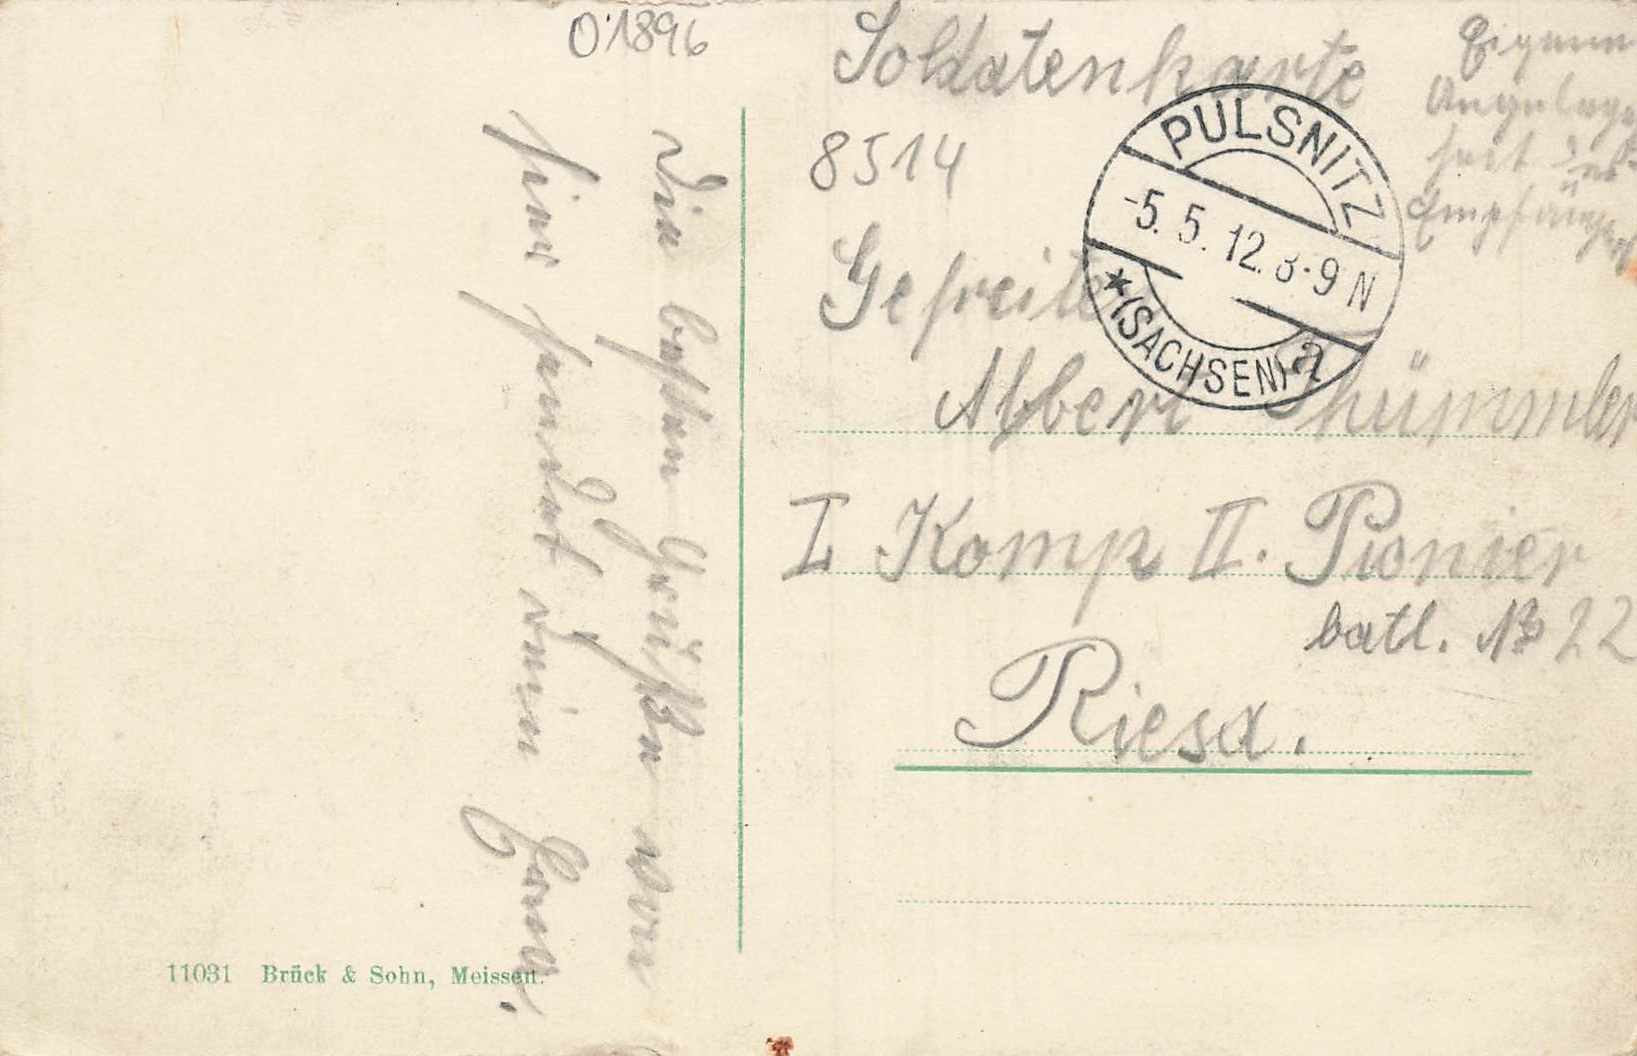 01896
Soldatenkarte
8514
Eigene
Angelegen
heit des
Empfängers
PULSNITZ
-5.5.12.8-9N
*(SACHSEN) a
Gefreiter
Albert Thümmler
I Komp II. Pionier
batl. No 22
Riesa.
Die besten Grüßen von
hier sendet dein
11031 Brück & Sohn, Meissen.